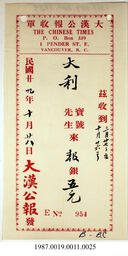 單收報公漢大
THE CHINESE TIMES
P. O. Box 339
1 PENDER ST. E.
VANCOUVER, B. C.
茲收到
大利
寶號
先生來報銀五元
民國廿九年十月廿八日
大漢公報發
E Nº 954
1987.0019.0011.0025